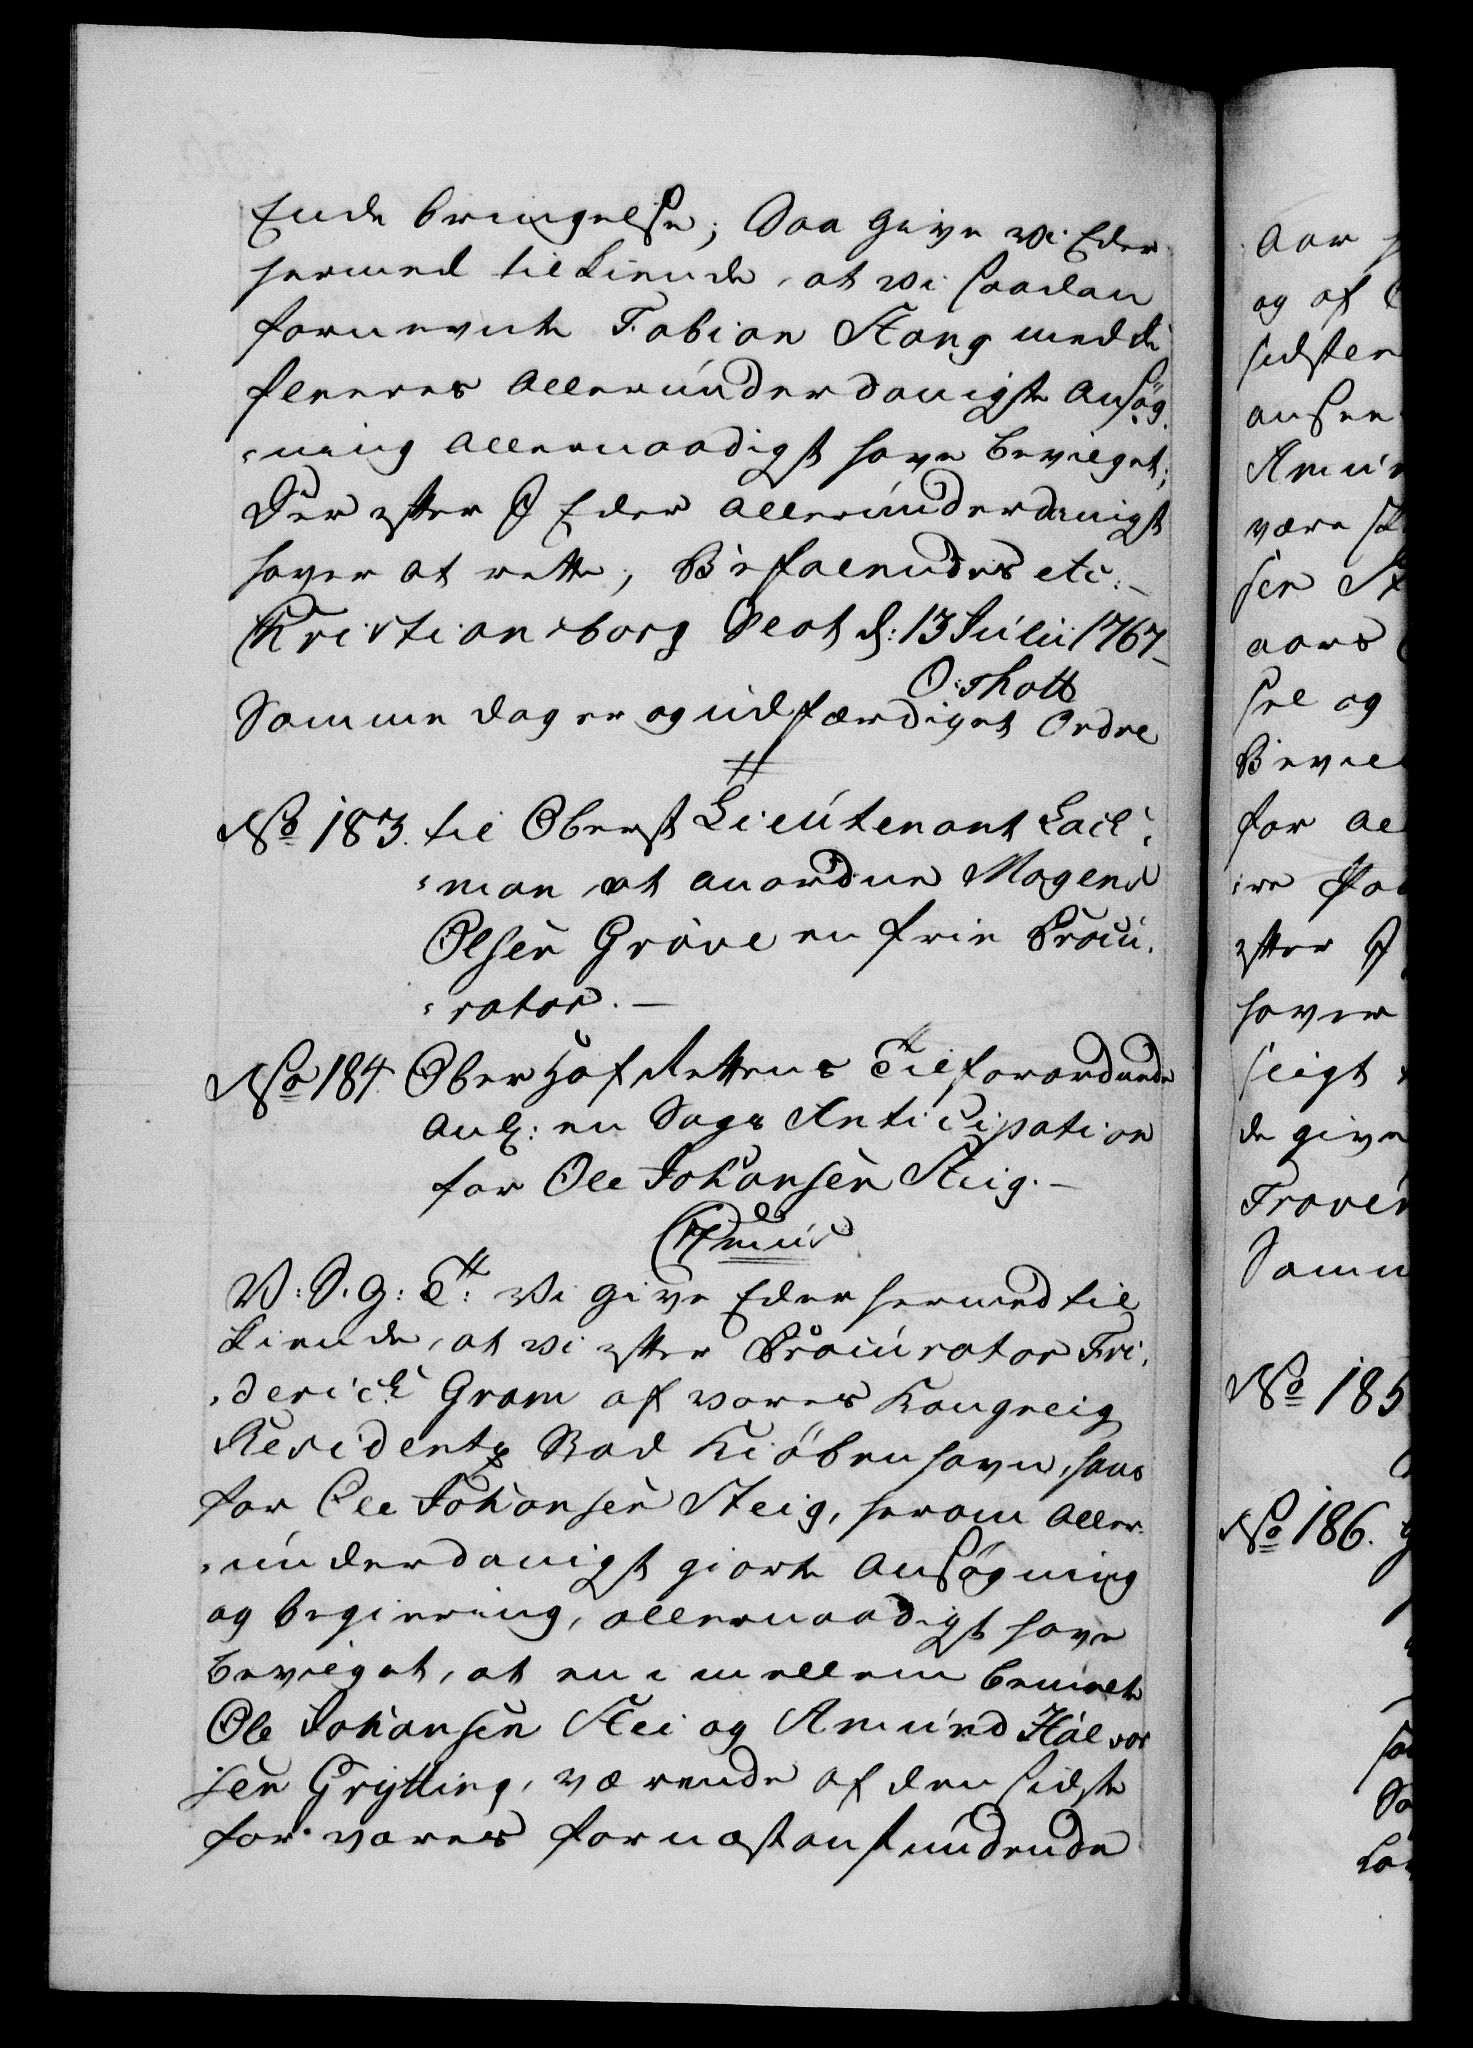 Ende bringelse; Saa give vi Eder
hermed tilkiende, at vi saadan
fornevnte Fabian Stang med de
fleeres allerunderdanigste Ansøg
ning allernaadigst have bevilget;
Der efter I Eder allerunderdanigst
haver at rette, Befalendes etc:
Christiansborg Slot d: 13 Julii 1767
O: Thott
Samme dag er og udfærdiget Ordre
No 183. til Oberst Lieutenant Lail
man at anordne Mogens
Olsen Grøve en frie Procu
rator. —
No 184 Ober Hof Rettens Tilforordnede
Anlg: en Sags Anticipation
for Ole Johansen Steig. —
Cr 7mus
V: S. G: T: Vi give Eder hermed til
kiende, at vi efter Procurator Fri
derich Gram af vores Kongelig
Residentz Stad Kiøbenhavn, hans
for Ole Johansen Steig, herom aller
underdanigst giorte Ansøgning
og begiering, allernaadigst have
bevilget, at en imellem bemelte
Ole Johansen Stei og Amund Halvor
sen Grytting, værende af den sidste
for vores fornæstanstundende
Aar
og af
sidsten
ansee
Amun
være
sen St
aars
sel og
Bevil
for al
efter I
haver
ligt
de give
Samm
No 185
No 186.